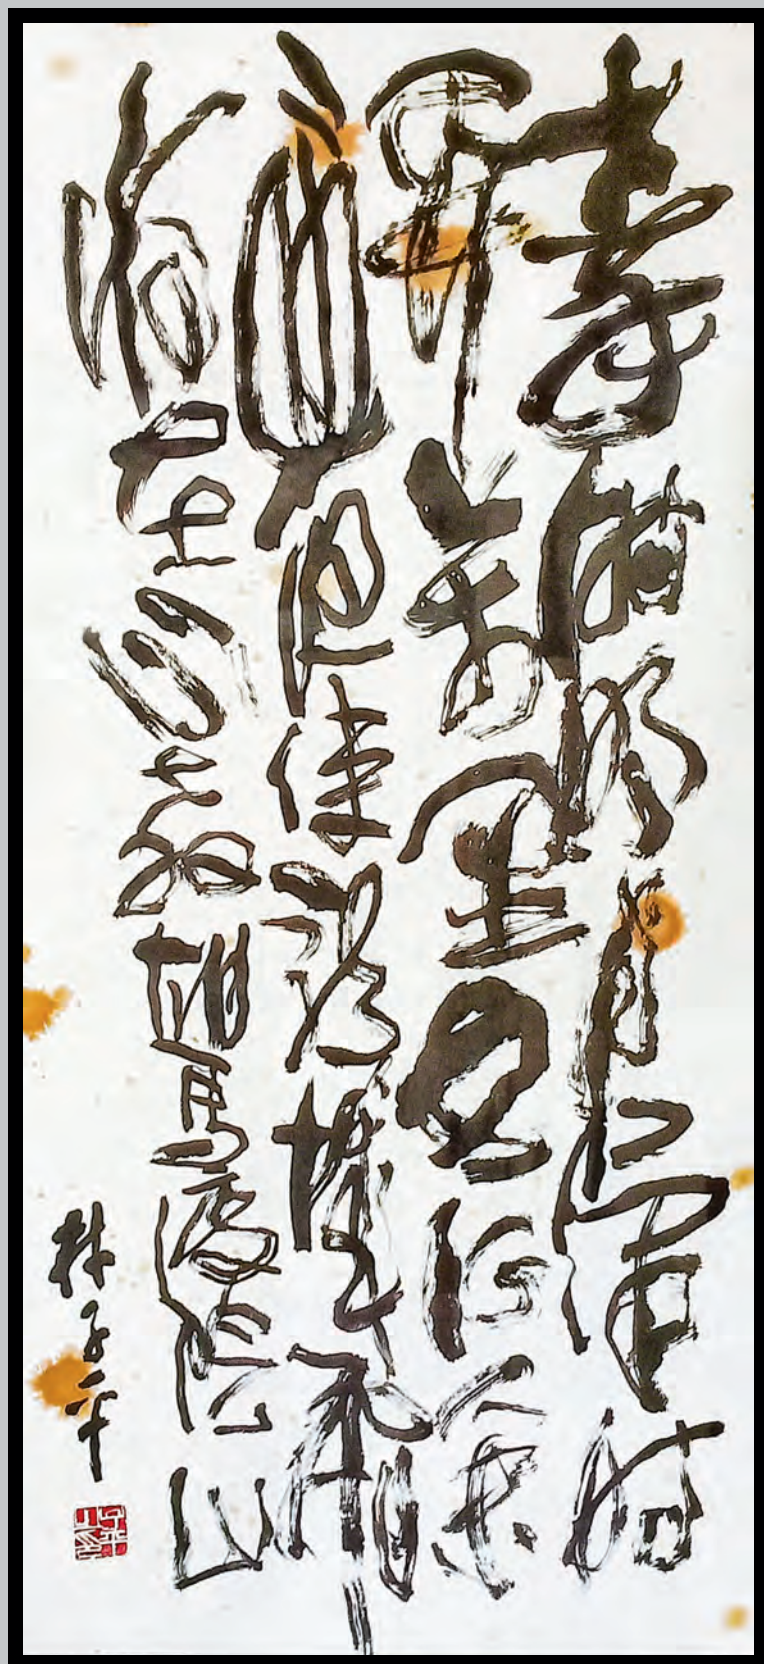 秦時明月漢時
關萬里長征人未
還但使龍城飛
將在不教胡馬度陰山
林子平